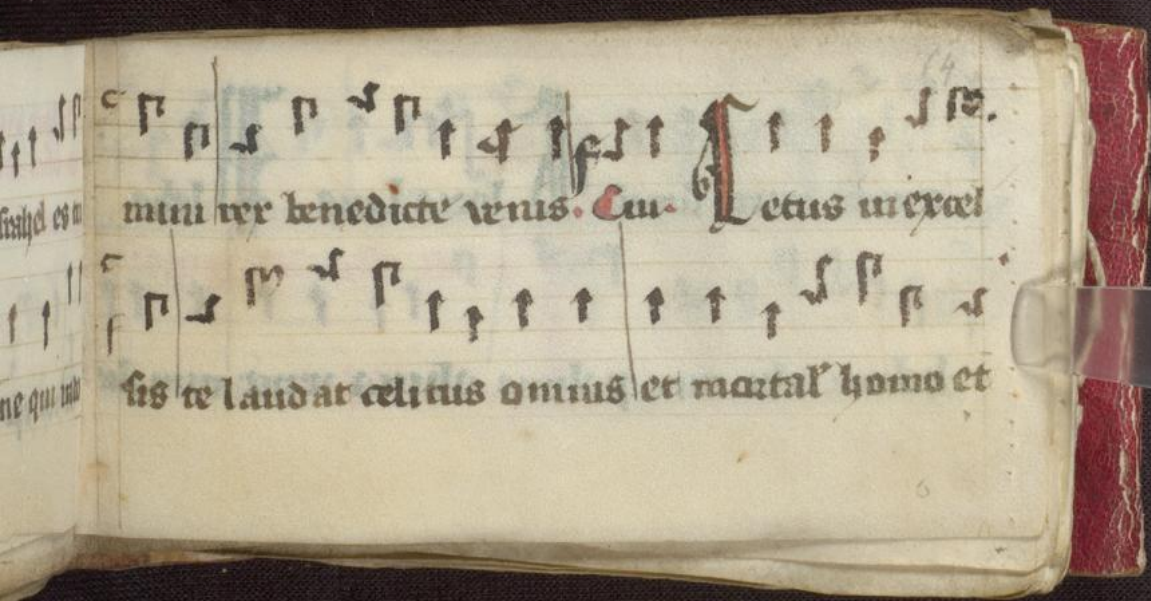 srahel es
mini rex benedicte venis. Cui. Letus in excel
ne qui
sis te laudat celitus omnis et mortal homo et
64